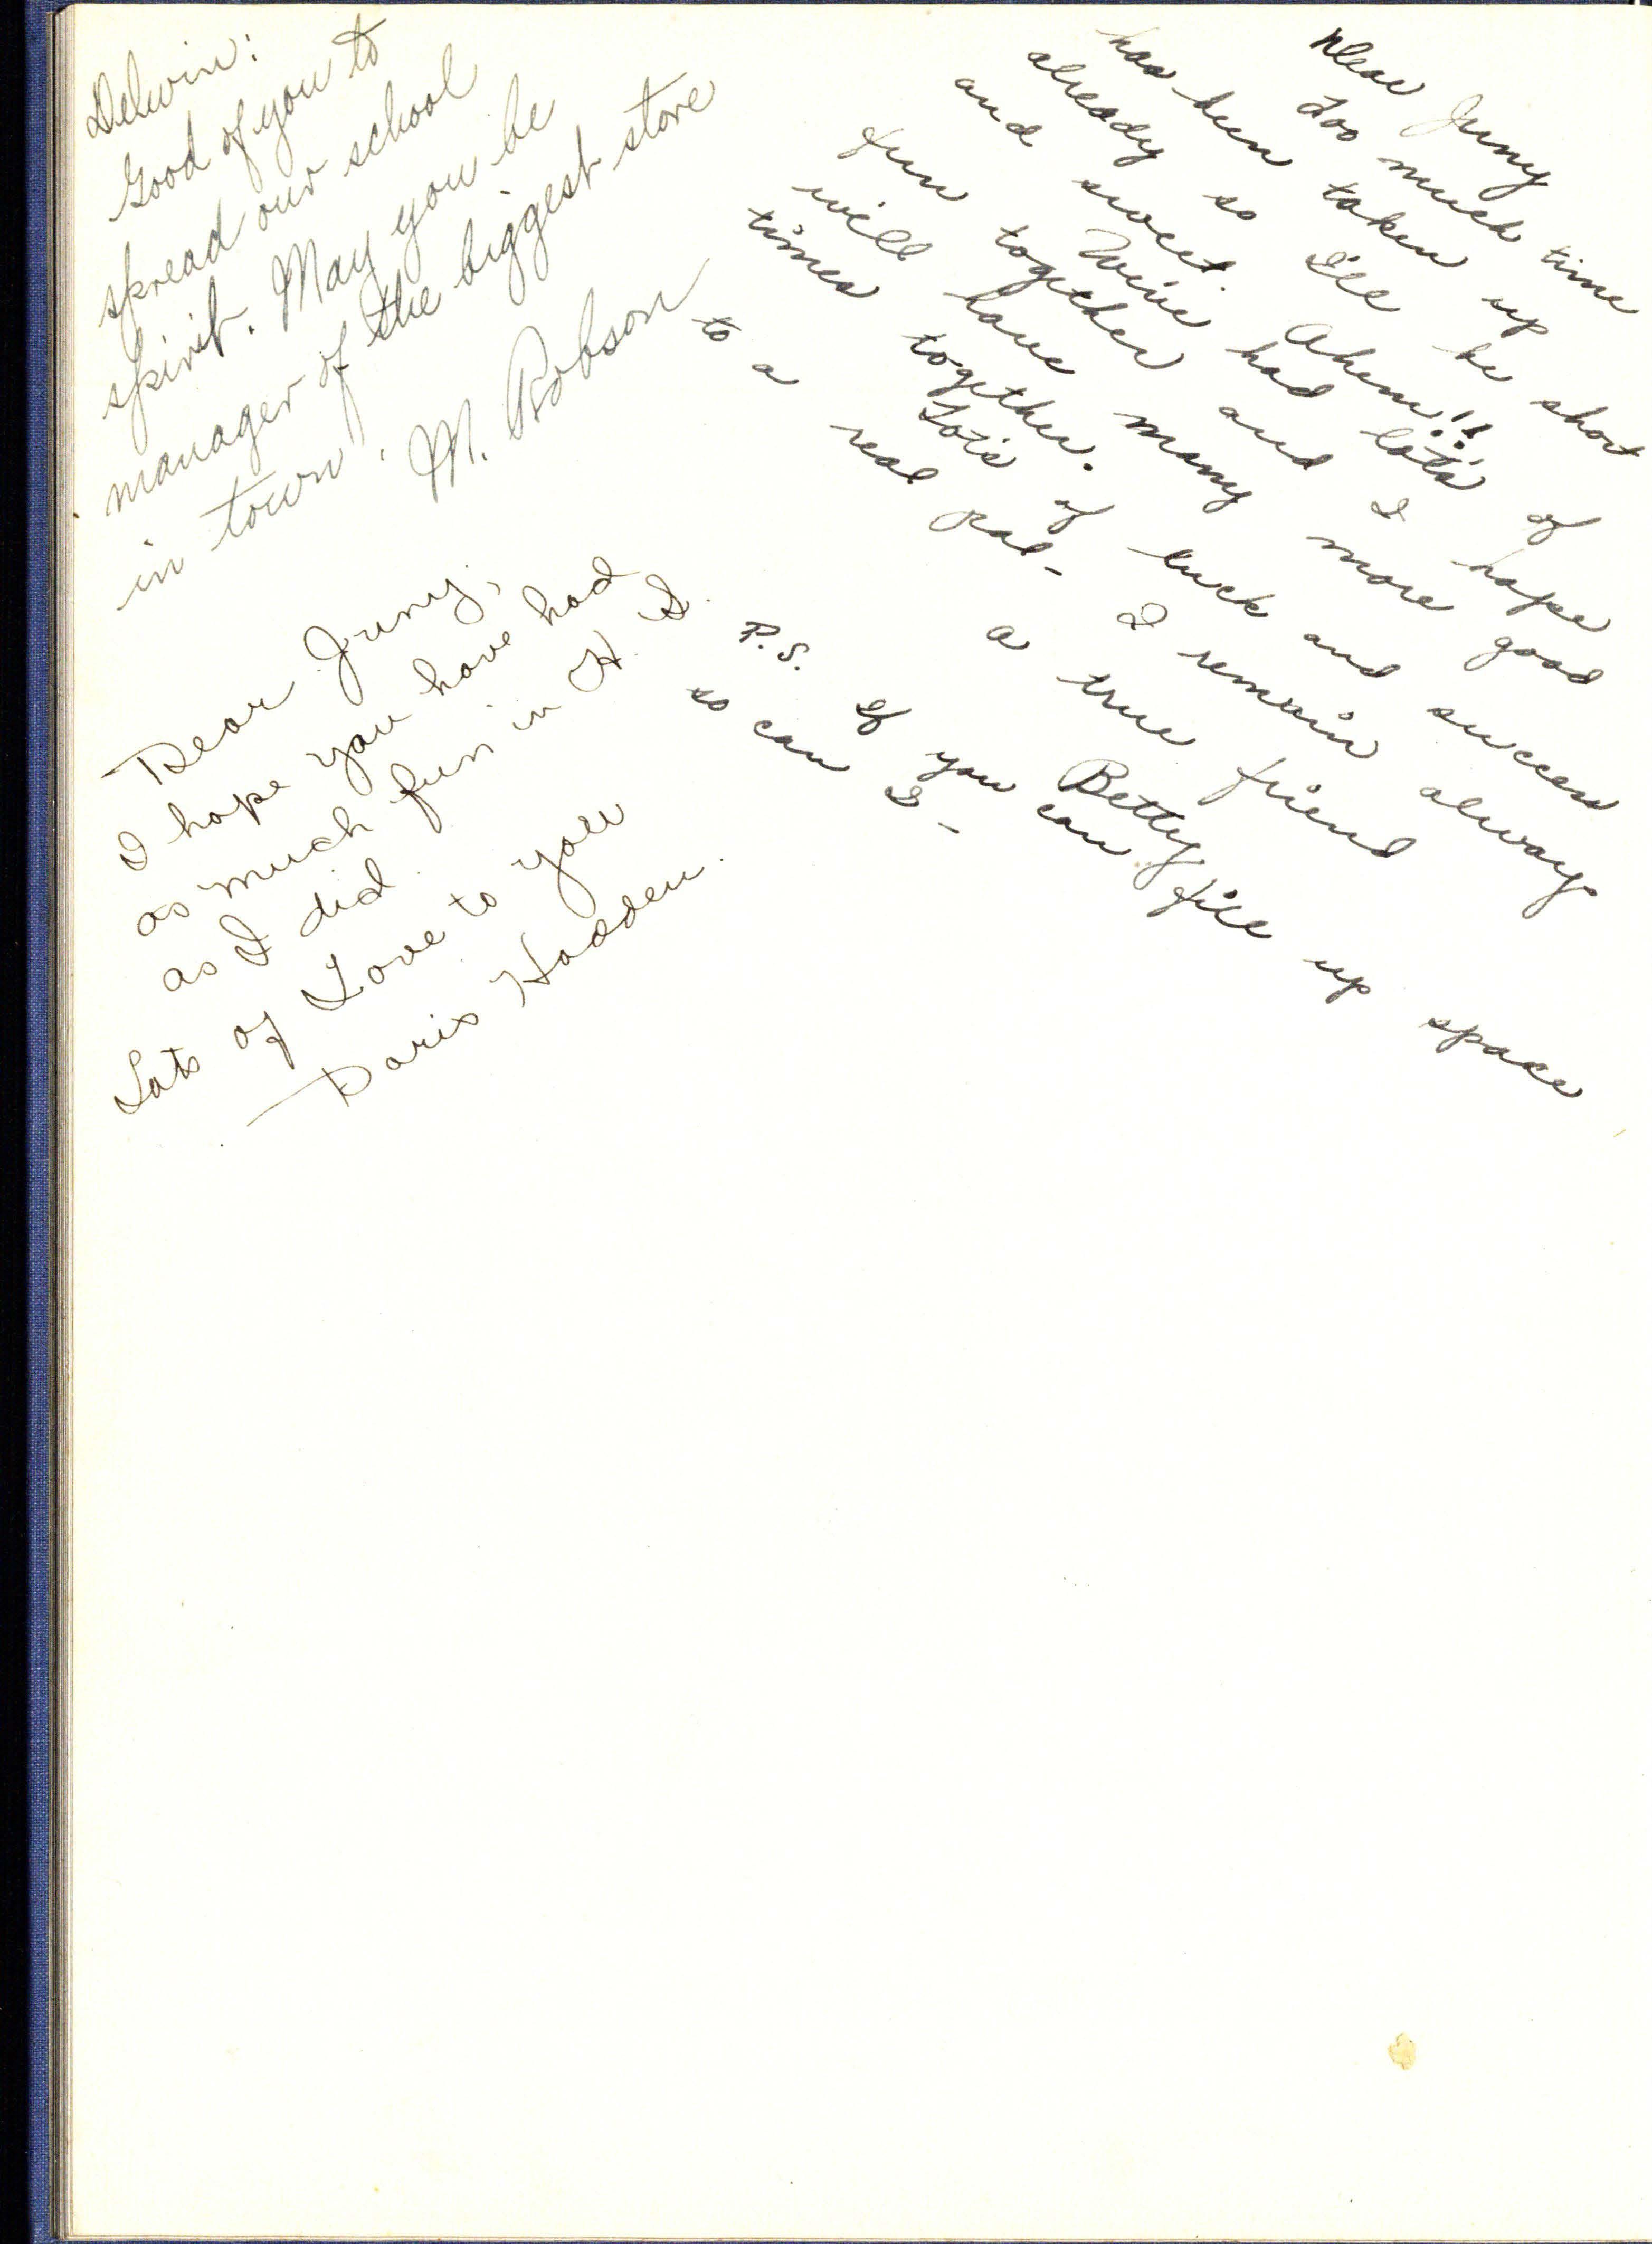 Delwin:
Good of you to
spread our school
spirit. May you be
manager of the biggest store
in town. M. Robson
Dear Juny,
I hope you have had
as much fun in H S.
as I did.
Lots of Love to you
Doris Hadden.
Dear Juny
Too much time
has been taken up
already so I'll be short
and sweet. Ahem!!
We've had lot's of
fun together and I hope
will have many more good
times together.
Lot's of luck and success
to a real pal-
I remain always
a true friend
Betty.
P.S. If you can file up space
so can I-